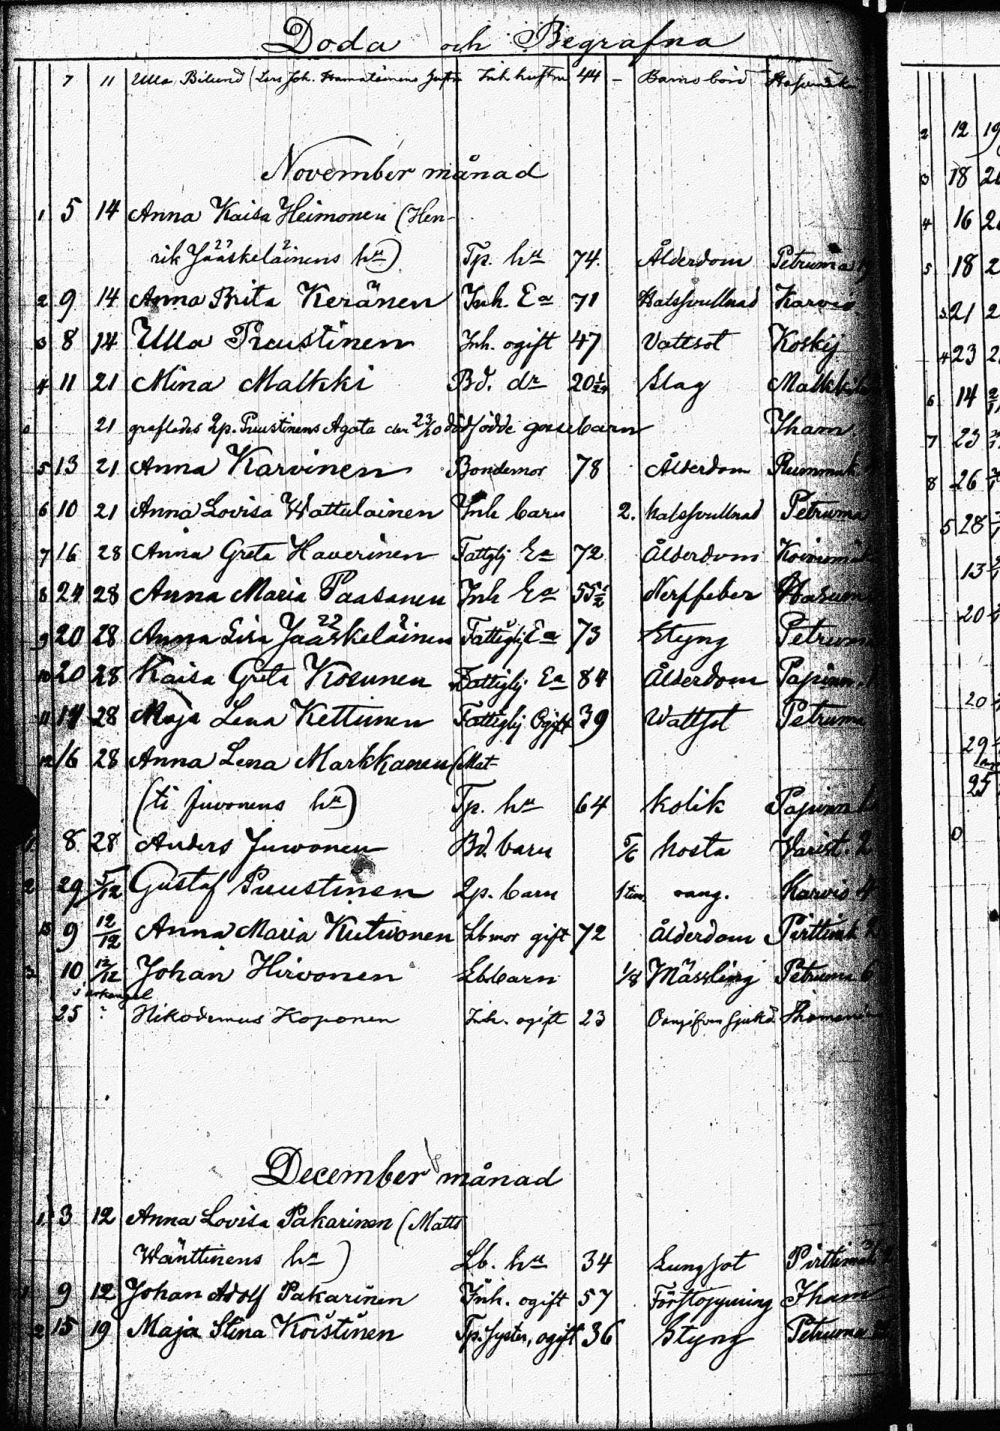 Döda och Begrafna
7 11 Ulla Bilund (Lars Joh. Inh. hustru 44 – Barnsbörd
November månad
1 5 14 Anna Kaisa Heimonen (Hen-
rik Jääskeläinens hu) Tp. hu 74. Ålderdom Petruma
2 9 14 Anna Brita Keränen Inh. Ea 71 Halssvullnad Karvio
3 8 14 Ulla Puustinen Inh. ogift 47 Vattsot Koskij
4 11 21 Mina Malkki Bd. dr 20 Slag Malkki
21 grafledes Lp. Puustinens Agata den 23/10 dödfödde gossebarn Tham
5 13 21 Anna Karvinen Bondemor 78 Ålderdom Rummuk
6 10 21 Anna Lovisa Wattulainen Inh barn 2. halssvullnad Petruma
7 16 28 Anna Greta Haverinen Fattighj Ea 72 Ålderdom
8 24 28 Anna Maria Paasanen Inh Ea 55 1/2 Nerffeber Hasum
9 20 28 Anna Lisa Jääskeläinen Fattighj Ea 73 Styng Petruma
10 20 28 Kaisa Greta Kosunen Fattighj Ea 84 Ålderdom Papinn.
11 14 28 Maja Lena Kettunen Fattighj Ogift 39 Wattsot Petruma
12 16 28 Anna Lena Markkanen (Mat-
(ti Juvonens hu) Tp. hu 64 kolik Papinn
8 28 Anders Juvonen Bd. barn 5/6 hosta Varist. 2
2 29 5/12 Gustaf Puustinen Lp. barn 1 tim. oang. Karvio 4
13 9 12/12 Anna Maria Kutvonen Lbmor gift 72 Ålderdom Pirttink 2
3 10 12/12 Johan Hirvonen Lb. barn 1/8 Mässling Petruma 6
25 Nikodemus Koponen Inh. ogift 23
December månad
1 3 12 Anna Lovisa Pakarinen (Matts
Wänttinens hu) Lb. hu 34 Lungsot Pirttimäki
1 9 12 Johan Adolf Pakarinen Inh. ogift 57 Förstoppning Tham
2 15 19 Maja Stina Koistinen Tp. syster, ogift 36 Styng Petruma
2 12 19
3 18
4 16
5 18 2
3 21 2
4 23 2
6 14
7 23
8 26
5 28
13
20
20
29
25
0